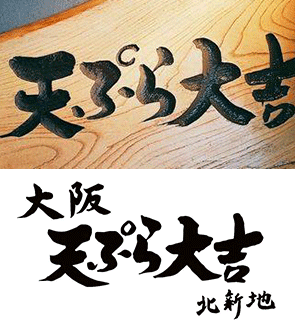 天ぷら大吉
大阪
天ぷら大吉
北新地